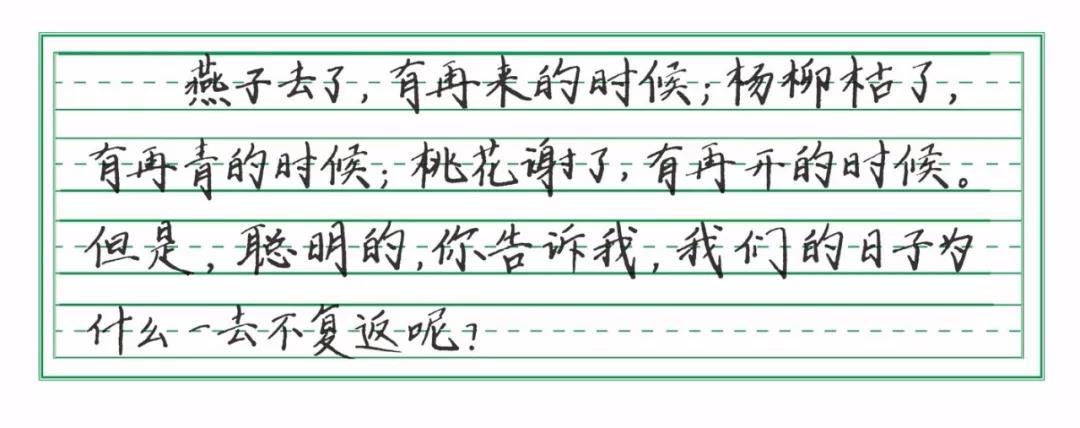 燕子去了，有再来的时候；杨柳枯了，
有再青的时候；桃花谢了，有再开的时候。
但是，聪明的，你告诉我，我们的日子为
什么一去不复返呢？